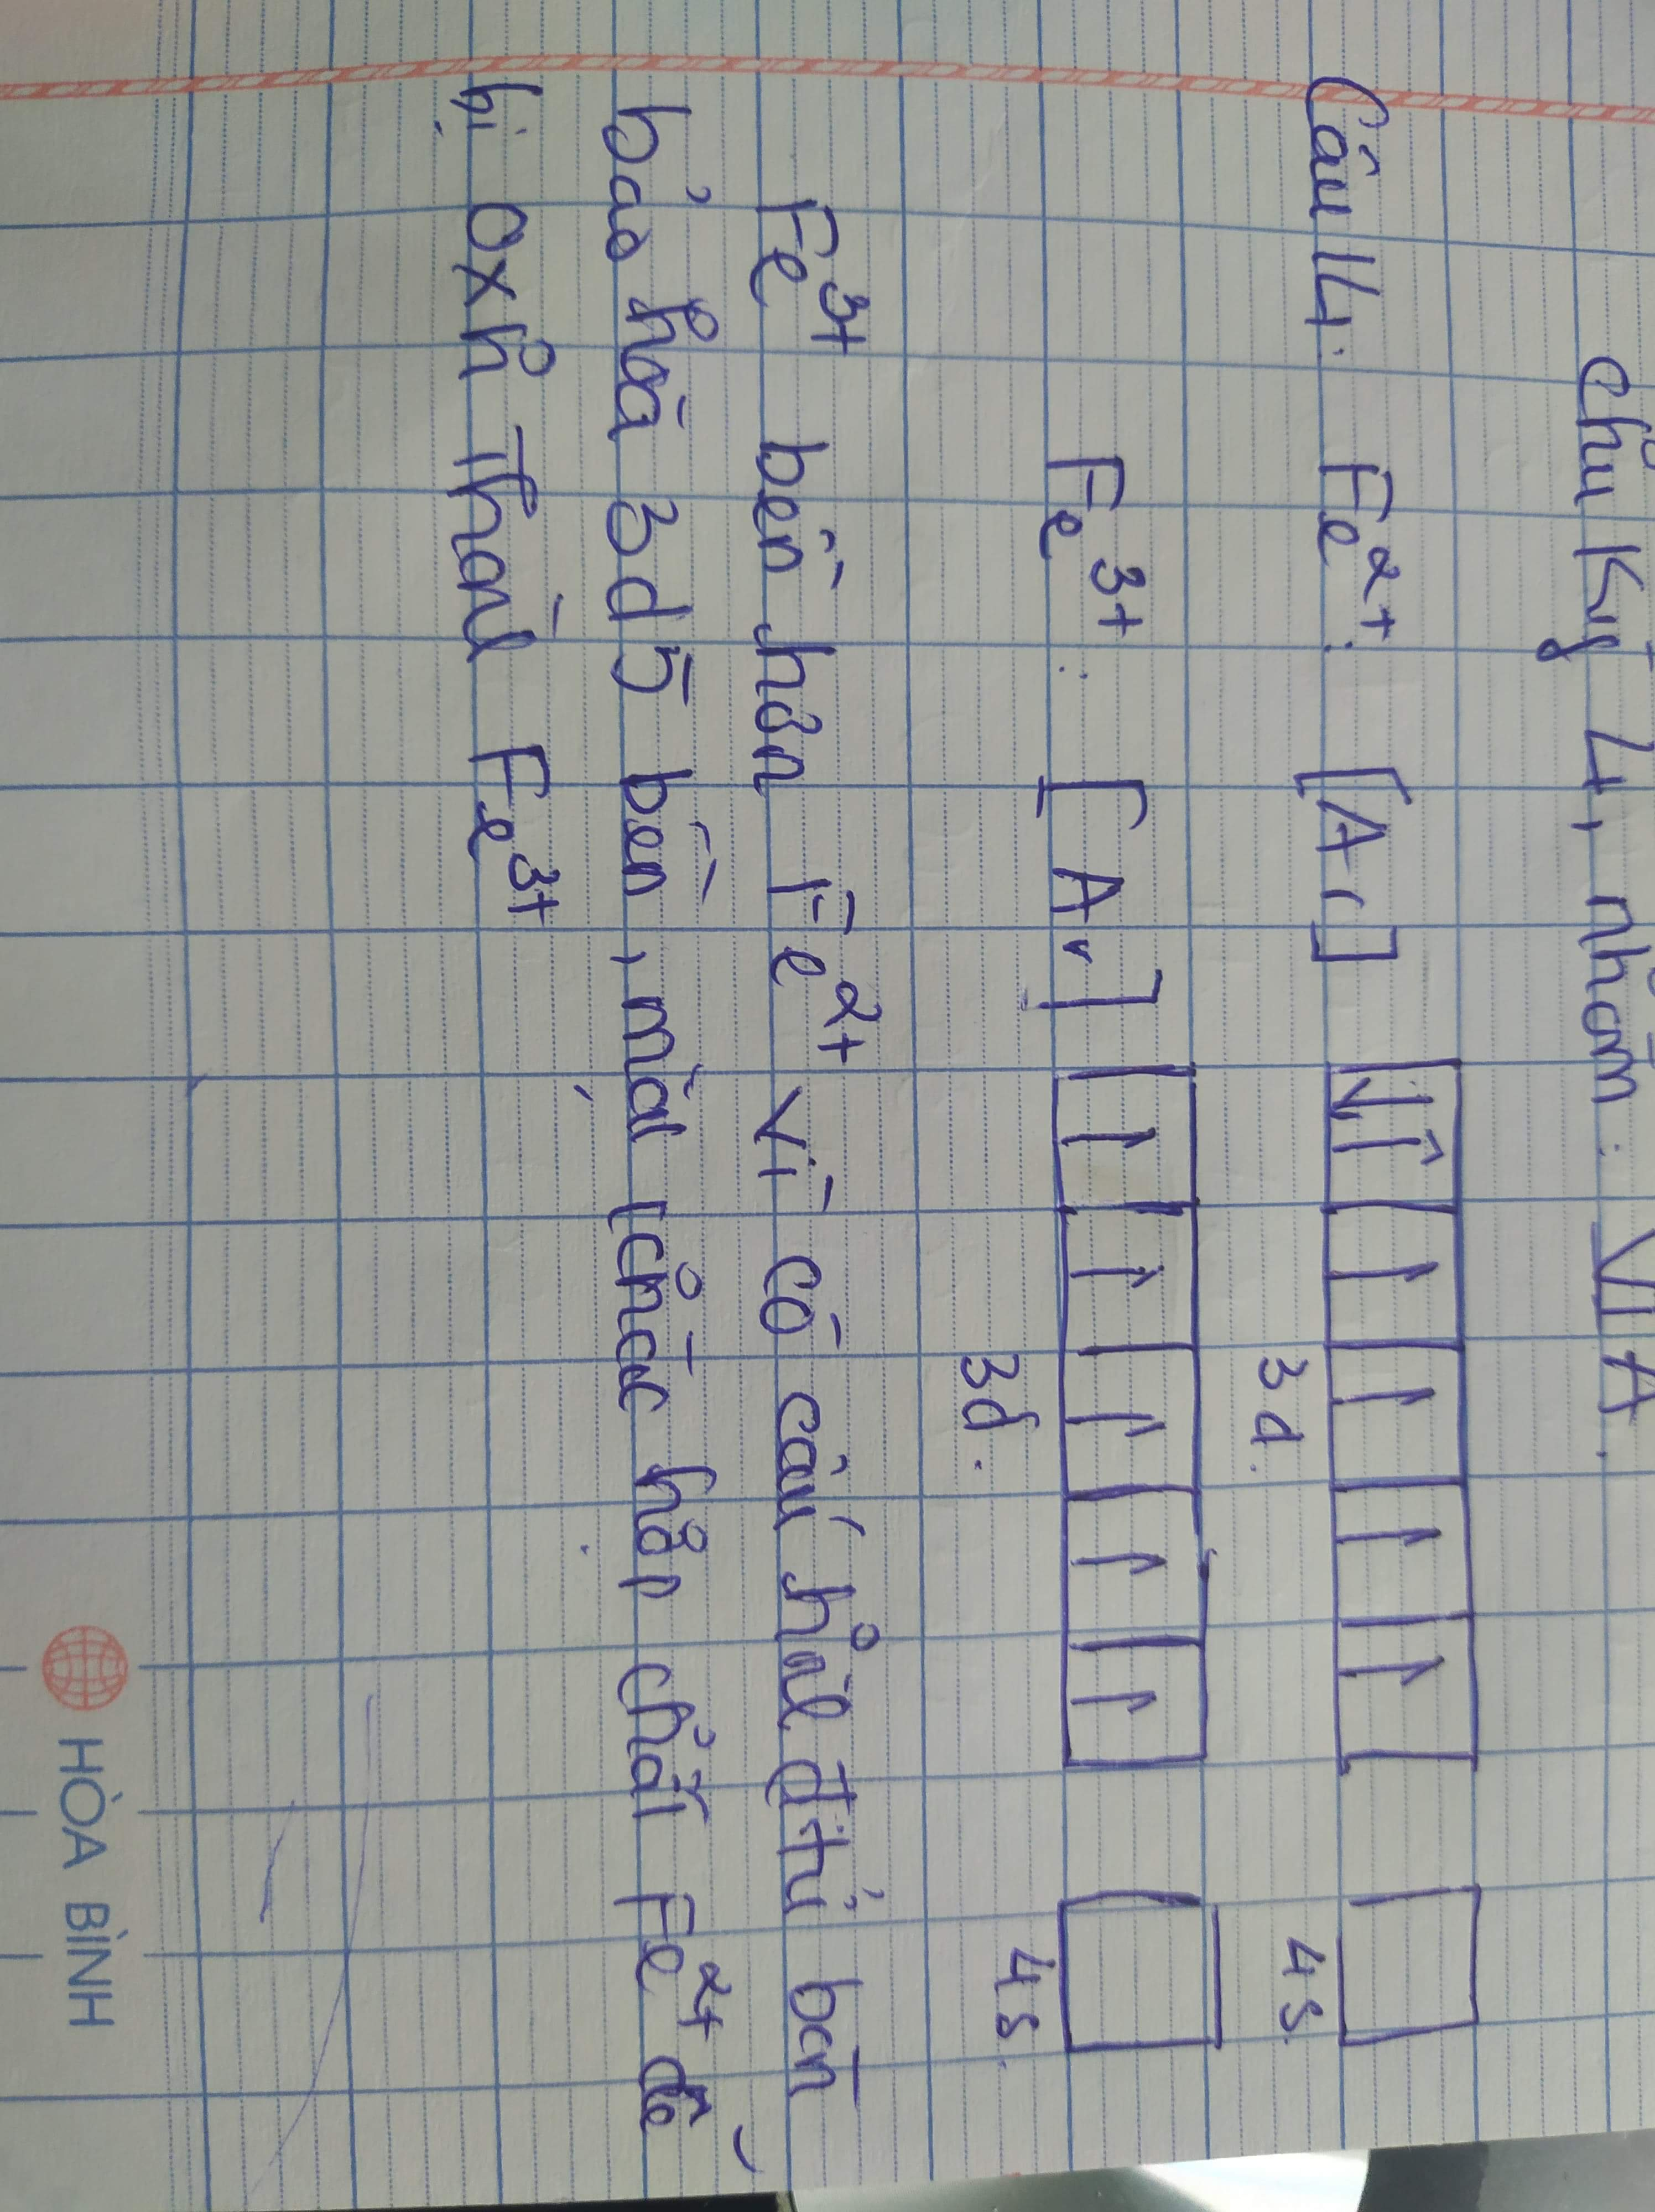 chu kỳ 4, nhóm: VIA.
Câu 14: Fe²⁺: [Ar] ↓↑ ↑ ↑ ↑ ↑
3d. 4s.
Fe³⁺: [Ar] ↑ ↑ ↑ ↑ ↑
3d. 4s.
Fe³⁺ bền hơn Fe²⁺ vì có cấu hình đ tử bán
bảo hoà 3d5 bền, mặt khác hợp chất Fe²⁺ dễ
bị oxh thành Fe³⁺
HÒA BÌNH